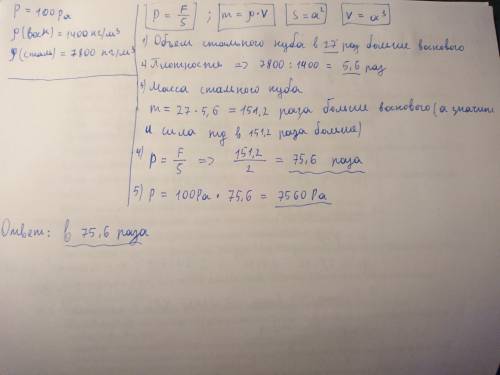 P = 100 Pa
ρ(воск) = 1400 кг/м³
ρ(стам) = 7800 кг/м³
P = F/S ; m = ρ·V S = a² V = a³
1) Объем стального куба в 27 раз больше воскового
2. Плотность => 7800 : 1400 = 5,6 раз
3) Масса стального куба
m = 27 · 5,6 = 151,2 раза больше воскового (а значит
и сила тд в 151,2 раза больше)
4) P = F/S => 151,2/2 = 75,6 раза
5) P = 100 Pa · 75,6 = 7560 Pa
Ответ: в 75,6 раза